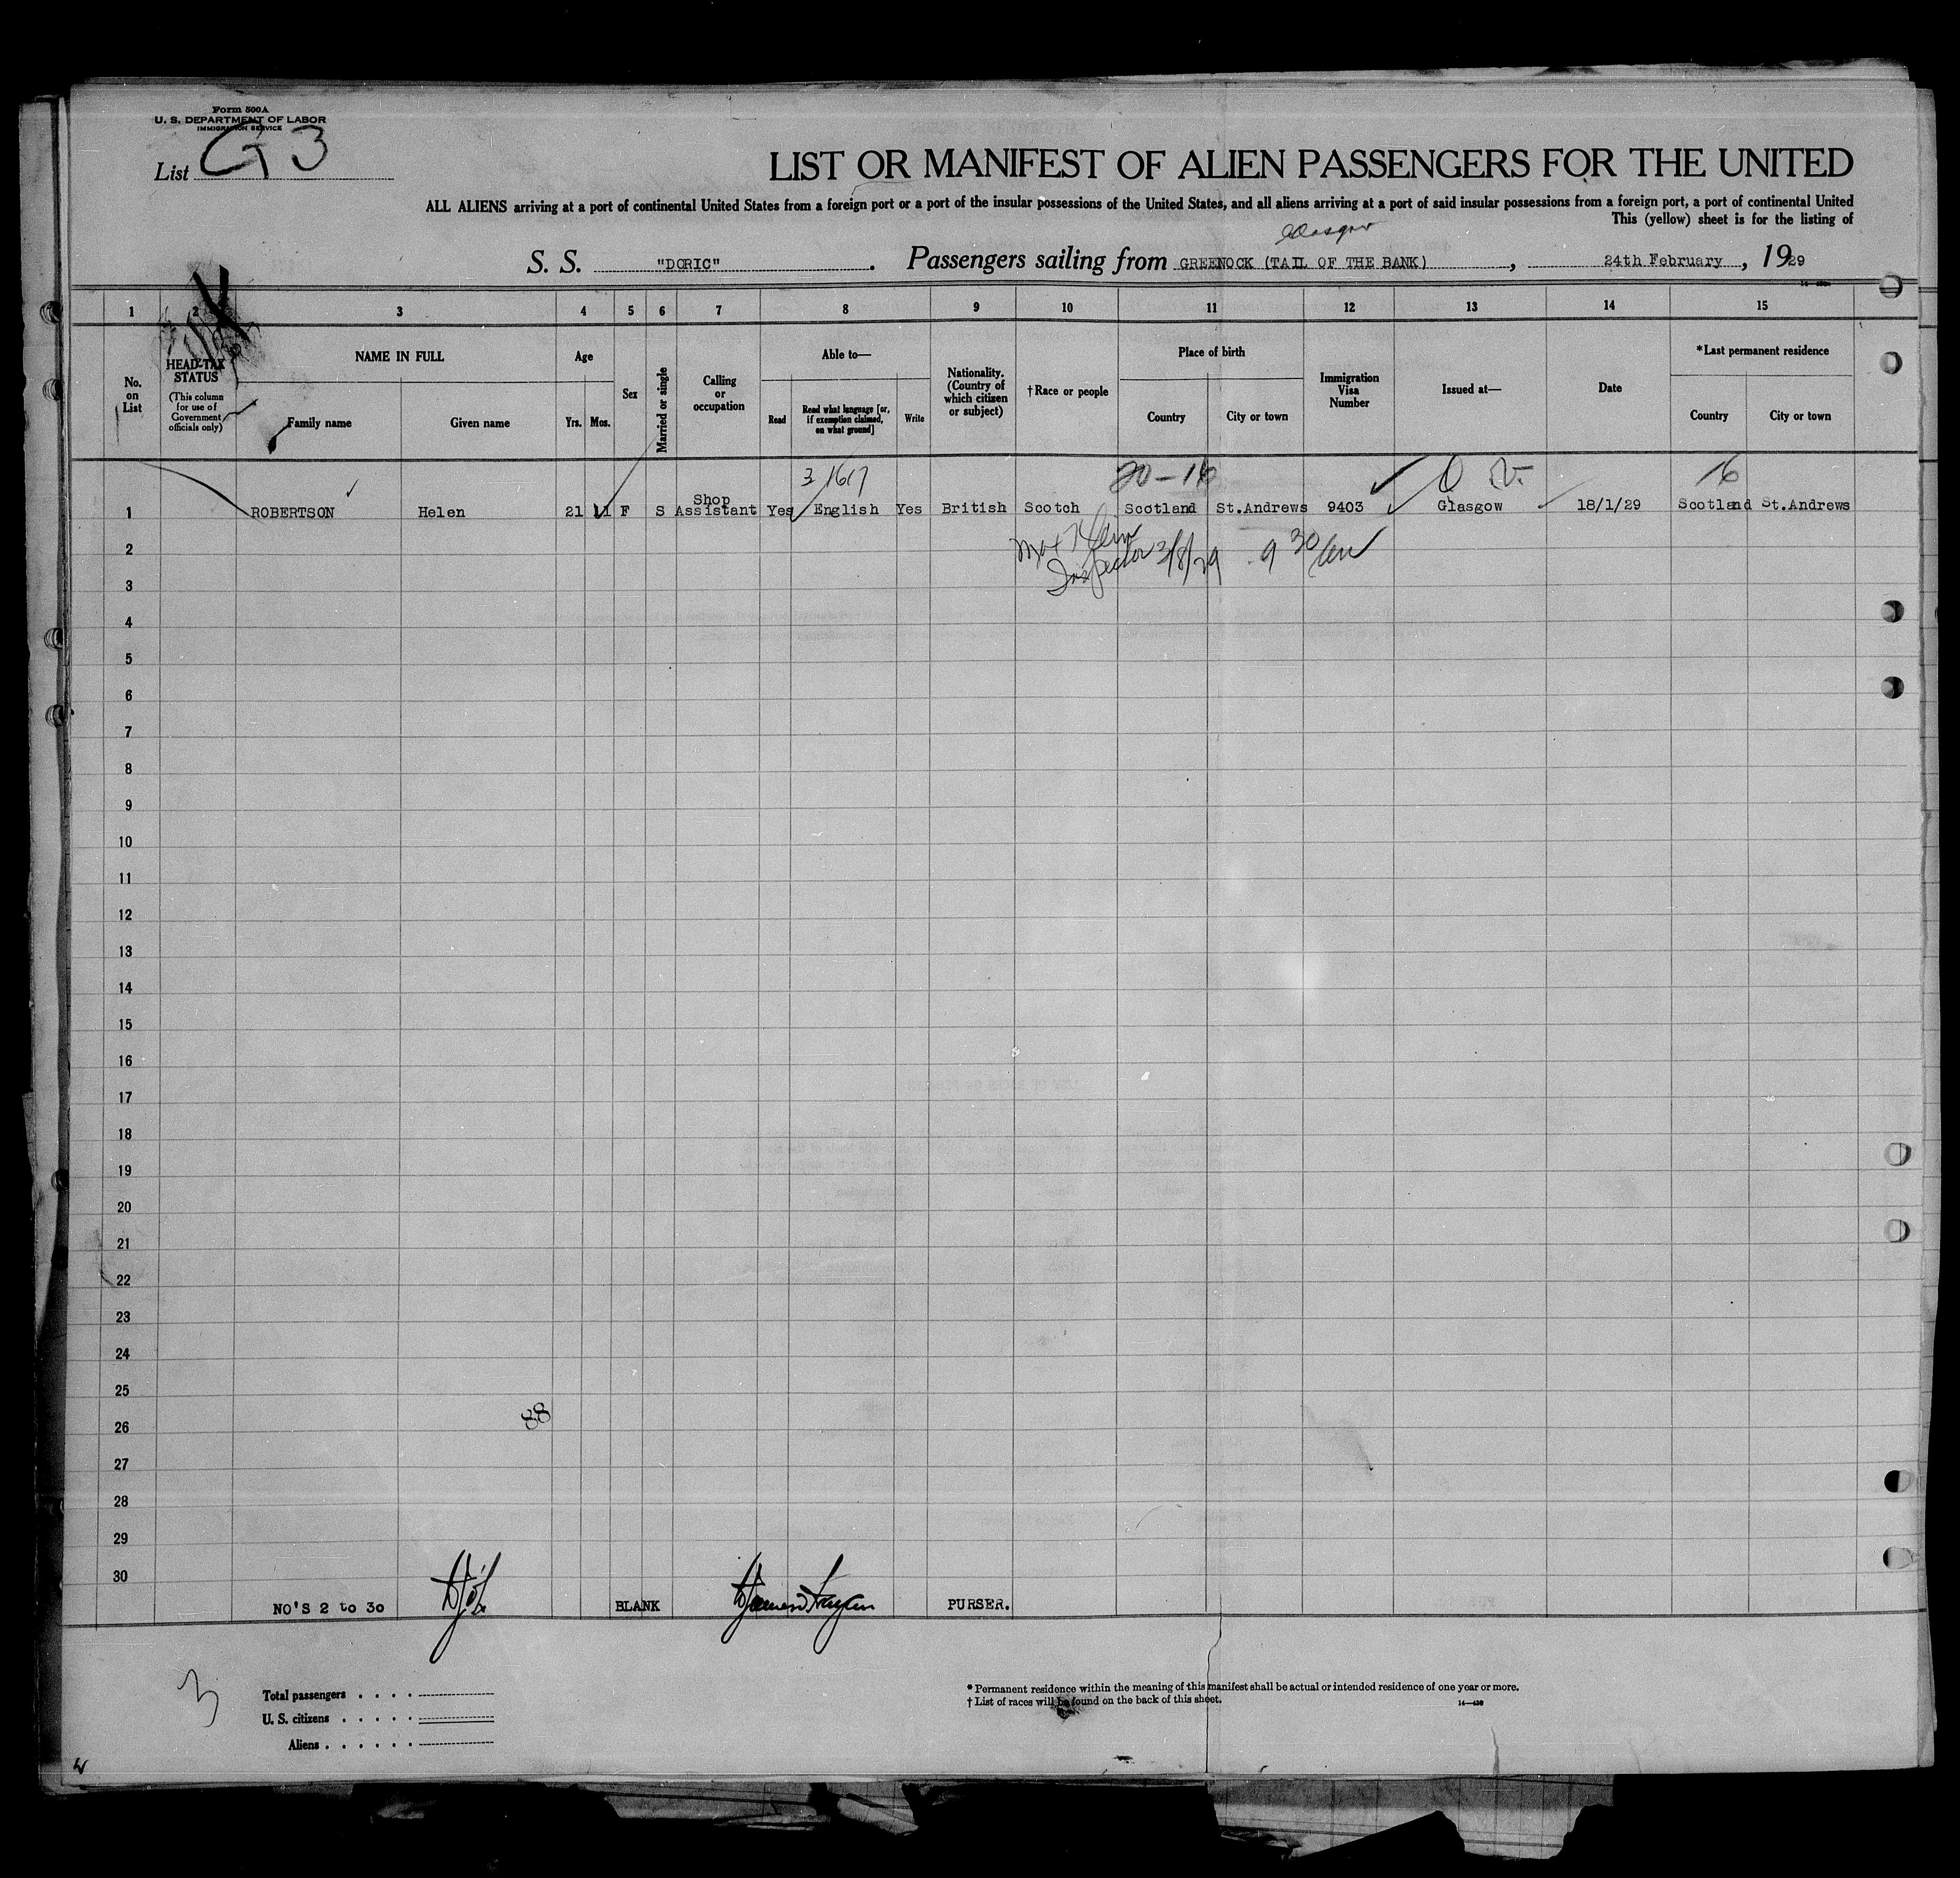 Form 500A
U. S. DEPARTMENT OF LABOR
IMMIGRATION SERVICE
List G 3
LIST OR MANIFEST OF ALIEN PASSENGERS FOR THE UNITED
ALL ALIENS arriving at a port of continental United States from a foreign port or a port of the insular possessions of the United States, and all aliens arriving at a port of said insular possessions from a foreign port, a port of continental United
This (yellow) sheet is for the listing of
Glasgow
S. S. "DORIC". Passengers sailing from GREENOCK (TAIL OF THE BANK), 24th February, 1929
1 2 3 4 5 6 7 8 9 10 11 12 13 14 15
No. on List
HEAD-TAX STATUS
(This column for use of Government officials only)
NAME IN FULL
Family name Given name
Age
Yrs. Mos.
Sex
Married or single
Calling or occupation
Able to—
Read
Read what language [or, if exemption claimed, on what ground]
Write
Nationality. (Country of which citizen or subject)
†Race or people
Place of birth
Country City or town
Immigration Visa Number
Issued at—
Date
*Last permanent residence
Country City or town
3 1617 20-16 16
1 ROBERTSON Helen 21 11 F S Shop Assistant Yes English Yes British Scotch Scotland St.Andrews 9403 Glasgow 18/1/29 Scotland St.Andrews
Max Klein
Inspector 3/8/29 9 30/am
2
3
4
5
6
7
8
9
10
11
12
13
14
15
16
17
18
19
20
21
22
23
24
25
88
26
27
28
29
30
NO'S 2 to 30 BLANK PURSER.
3
Total passengers . . . .
U. S. citizens . . . . .
Aliens . . . . . .
* Permanent residence within the meaning of this manifest shall be actual or intended residence of one year or more.
† List of races will be found on the back of this sheet.
14—430